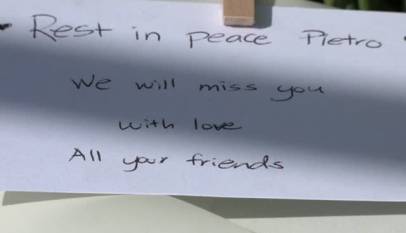 Rest in peace Pietro
We will miss you
with love
All your friends